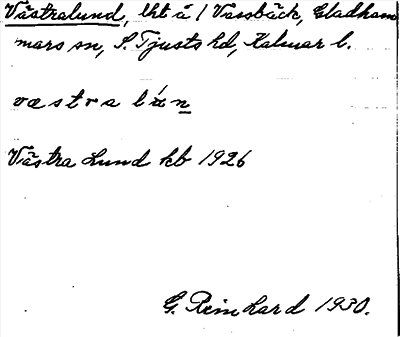 Västralund, lht å 1 Vassbäck, Gladham
mars sn, S. Tjusts hd, Kalmar l.
væstra
Västra Lund kb 1926
G. Reinhard 1930.